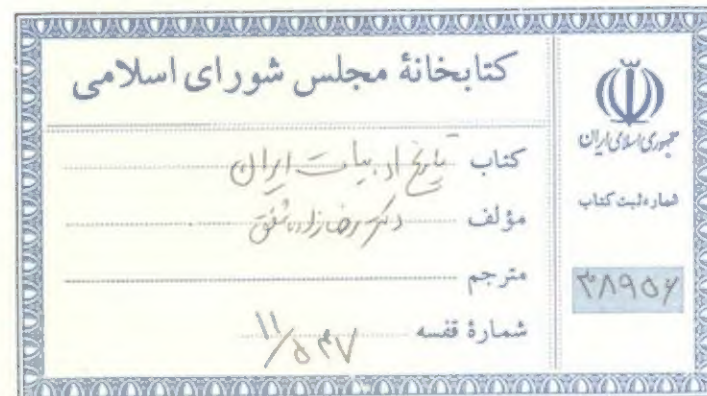 کتابخانهٔ مجلس شورای اسلامی
کتاب تاریخ ادبیات ایران
مؤلف دکتر رضازاده شفق
مترجم
شمارهٔ قفسه ۱۱/۵۴۷
جمهوری اسلامی ایران
شماره ثبت کتاب
۳۸۹۵۶